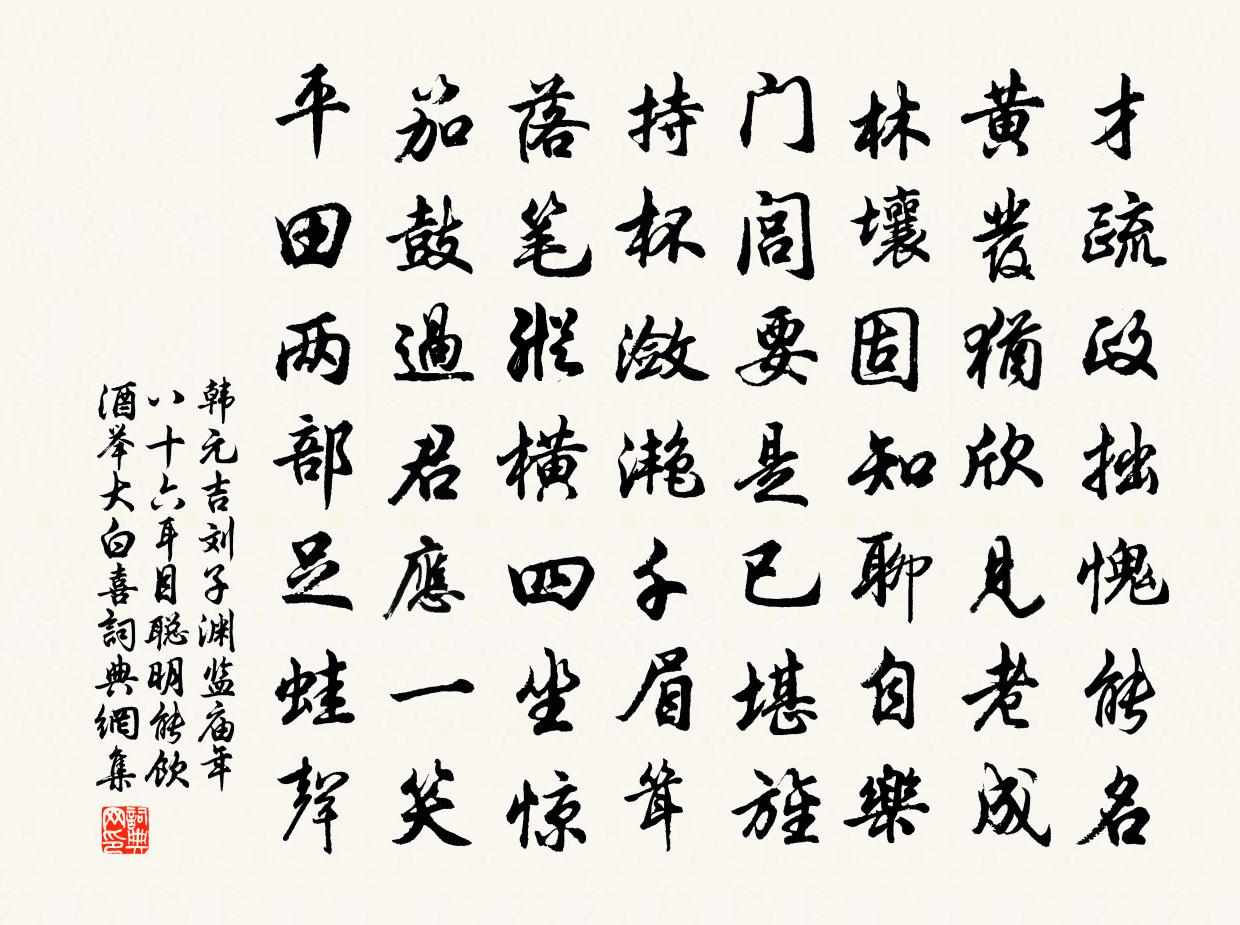 才疏政拙愧能名
黄發猶欣見老成
林壤固知聊自樂
门闾要是已堪旌
持杯潋滟千眉耸
落笔縱横四坐惊
笳鼓過君應一笑
平田两部足蛙聲
韩元吉刘子渊监庙年
八十六耳目聪明能饮
酒举大白喜詞典網集
詞典网印